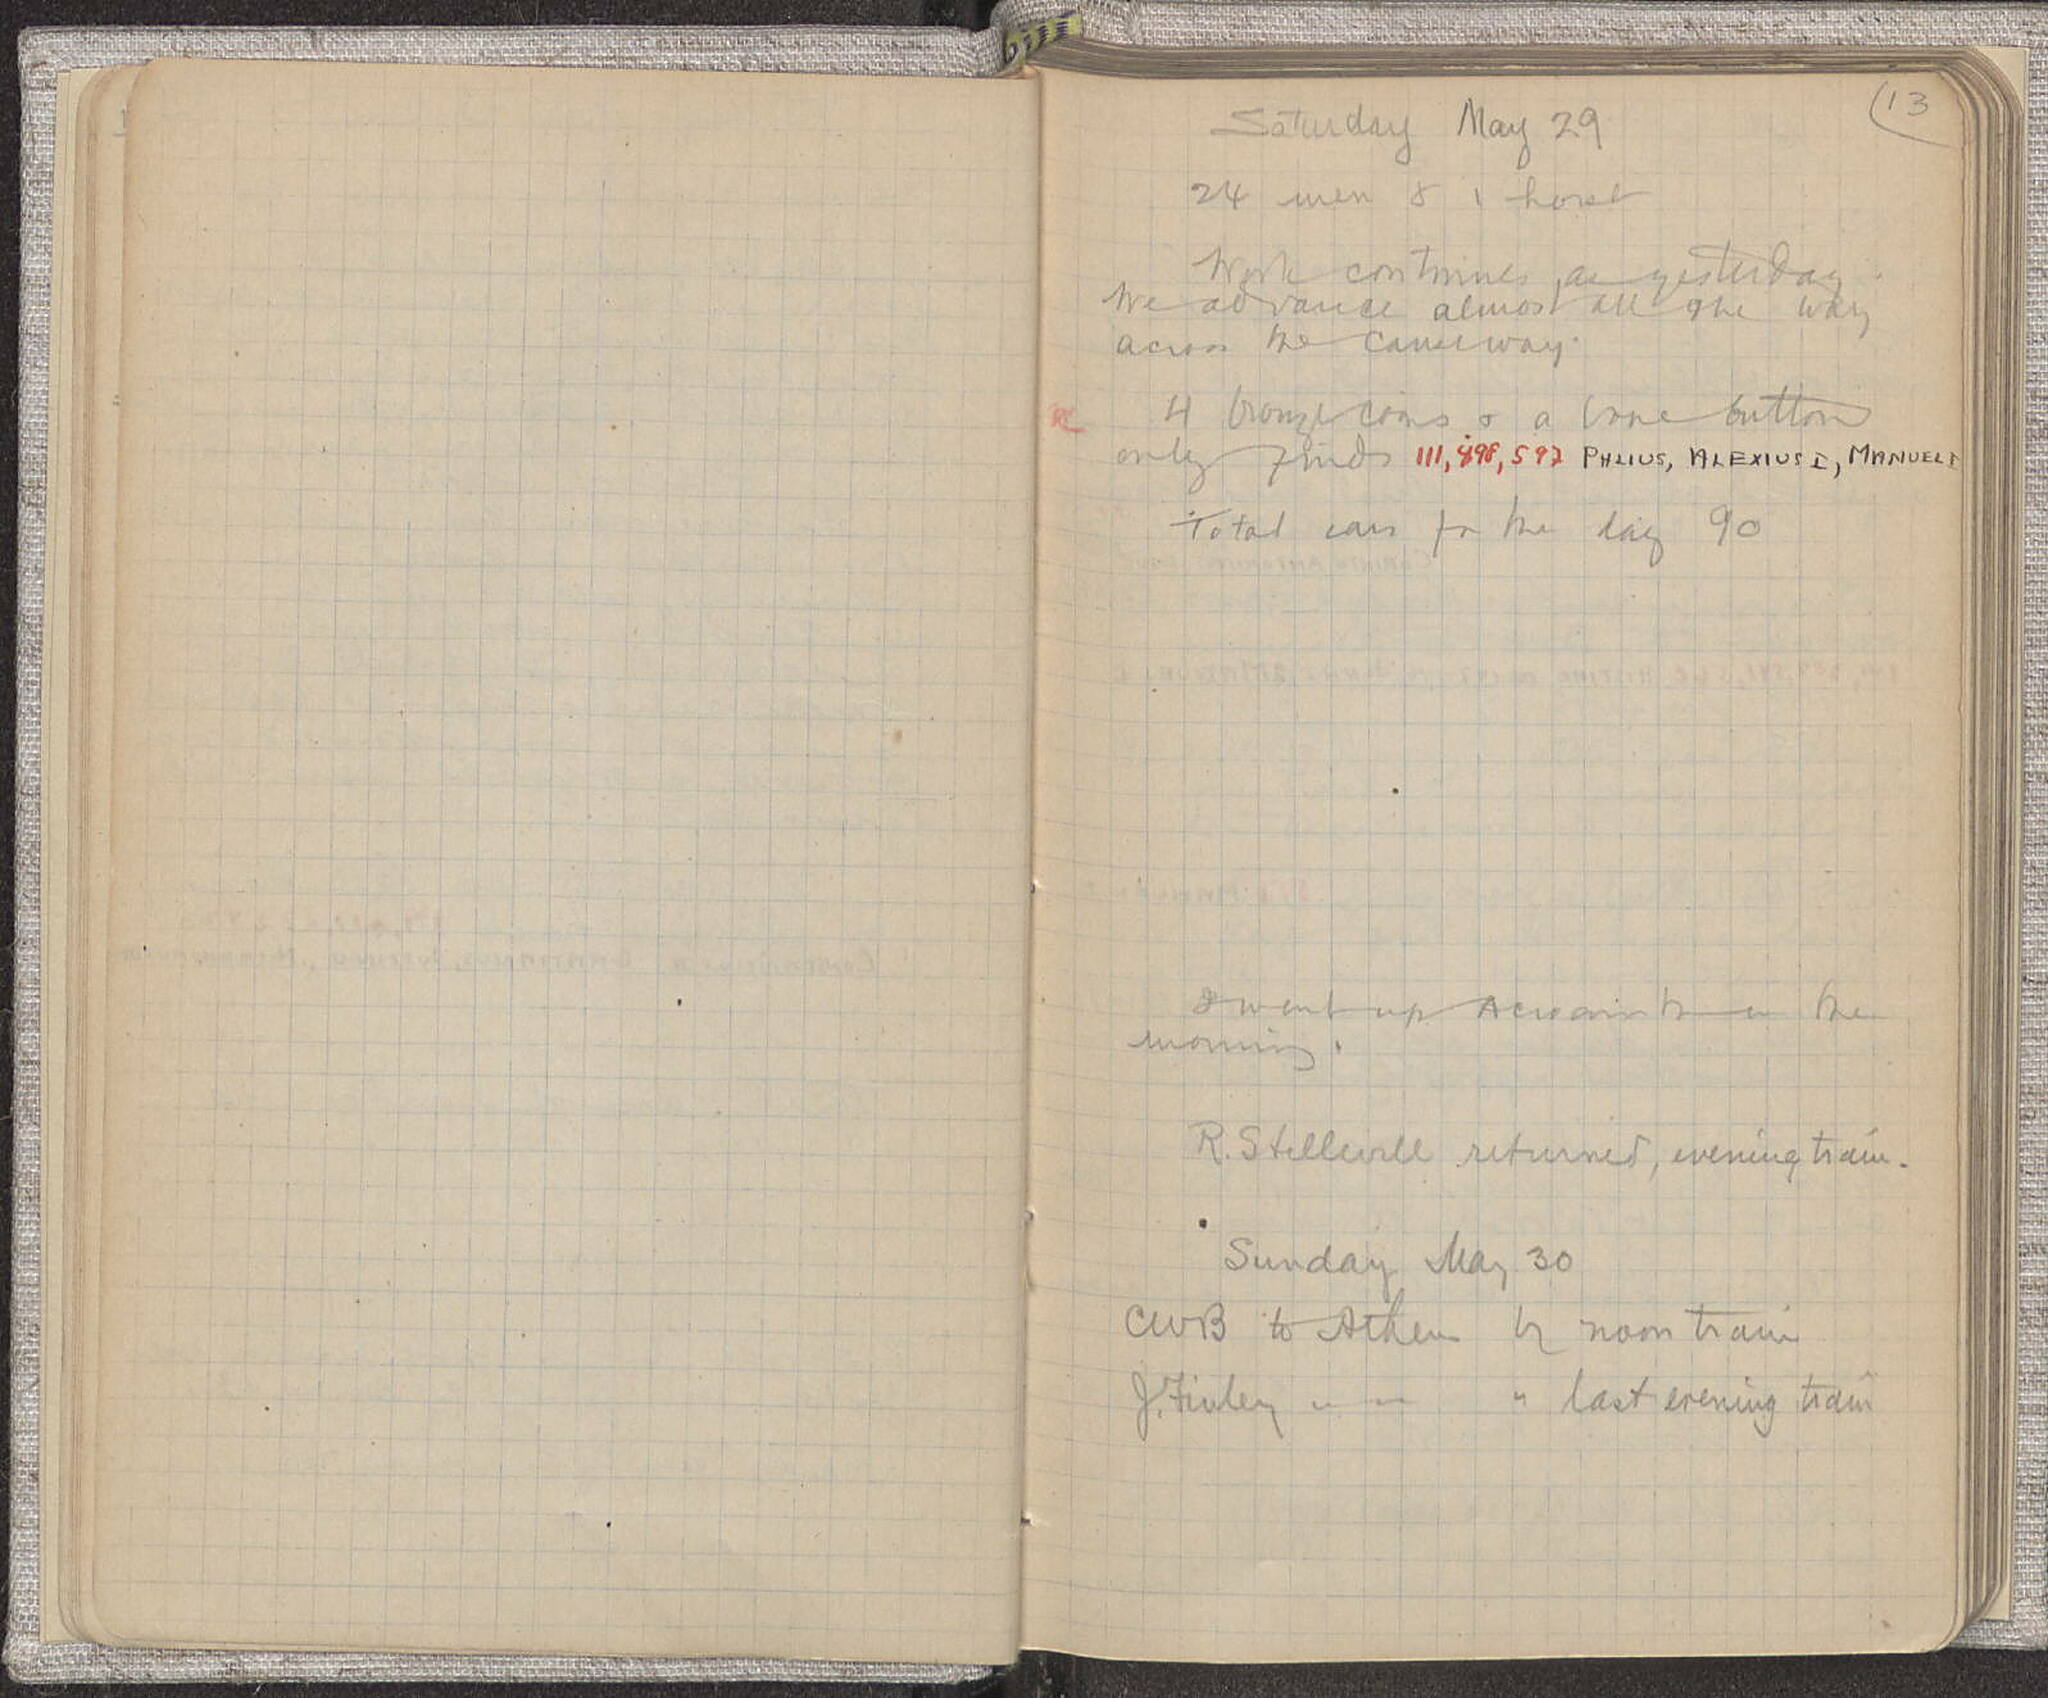 13
Saturday May 29
24 men & 1 horse
Work continues as yesterday.
We advance almost all the way
across the causeway.
4 bronze coins & a bone button
only finds 111, 498, 597 PHLIUS, ALEXIUS I, MANUEL I
Total cars for the day 90
I went up Acrocorinth in the
morning.
R. Stillwell returned, evening train.
Sunday May 30
CWB to Athens by noon train
J. Finley " " " last evening train